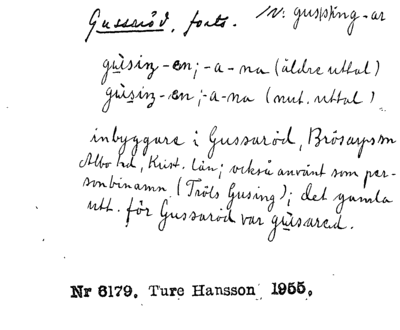 Gussröd, forts. /v: gus(s)ing-ar
gùsiŋ -en; -a -na (äldre uttal)
gùsiŋ -en; -a -na (nut. uttal)
inbyggare i Gussaröd, Brösarps sn
Albo hd, Krist. län; också använt som per-
sonbinamn (Tröls Gusing); det gamla
utt. för Gussaröd var gùsared.
Nr 6179. Ture Hansson 1955.